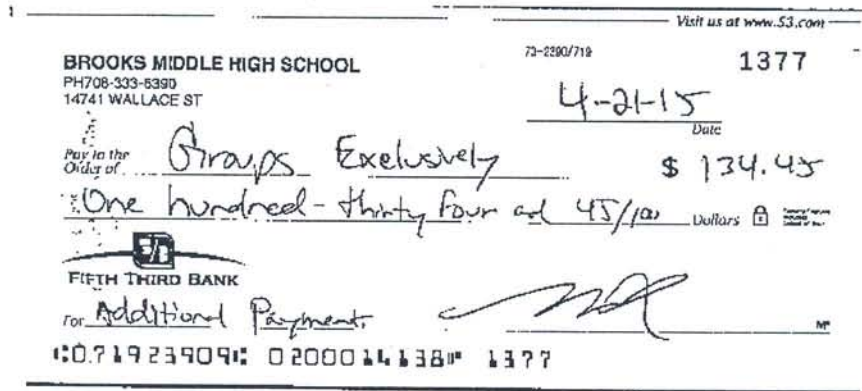 Visit us at www.53.com
BROOKS MIDDLE HIGH SCHOOL
73-2390/719
1377
PH708-333-6390
14741 WALLACE ST
4-21-15
Date
Pay to the Order of Groups Exclusively $ 134.45
One hundred - thirty four and 45/100 Dollars
5/3
FIFTH THIRD BANK
For Additional Payment
MP
⑆071923909⑆ 0200014138⑈ 1377